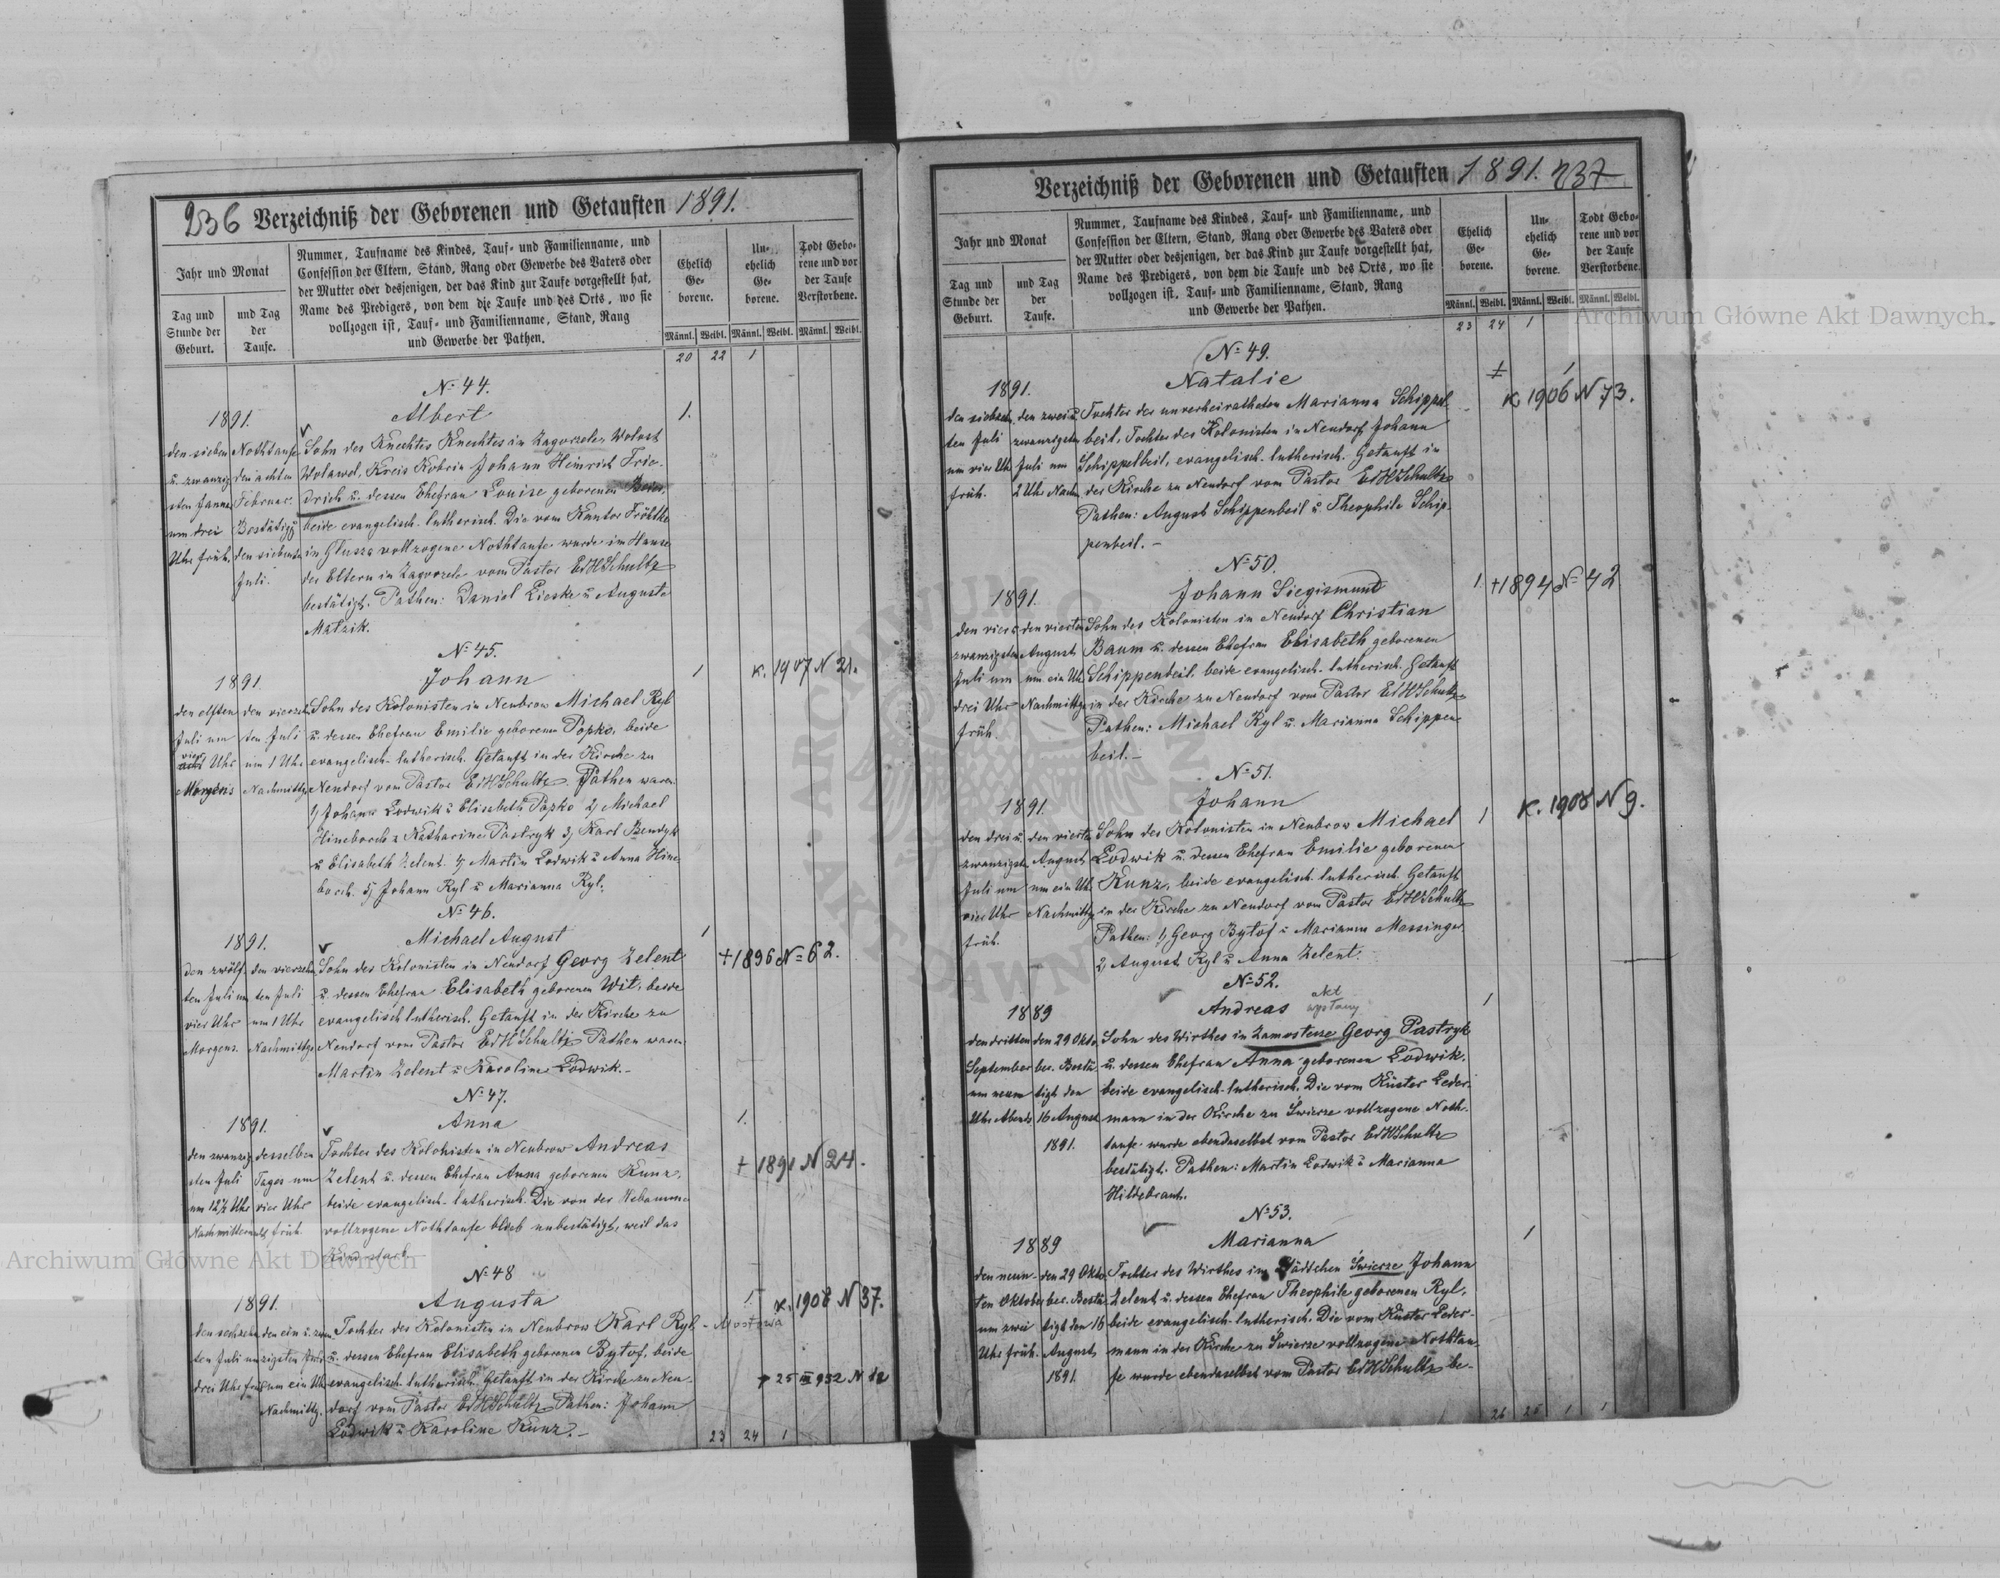 236 Verzeichniß der Geborenen und Getauften 1891.
Jahr und Monat
Tag und Stunde der Geburt.
und Tag der Taufe.
Nummer, Taufname des Kindes, Tauf- und Familienname, und
Confession der Eltern, Stand, Rang oder Gewerbe des Vaters oder
der Mutter oder desjenigen, der das Kind zur Taufe vorgestellt hat,
Name des Predigers, von dem die Taufe und des Orts, wo sie
vollzogen ist, Tauf- und Familienname, Stand, Rang
und Gewerbe der Pathen.
Ehelich Ge-borene.
Un-ehelich Ge-borene.
Todt Gebo-rene und vor der Taufe Verstorbene.
Männl. Weibl. Männl. Weibl. Männl. Weibl.
20 22 1
№ 44.
Albert
1.
1891.
den sieben
u. zwanzig
sten Janua
um drei
Uhr früh.
Nothtaufe
den achten
Februar.
Bestätigg
den siebente
Juli.
Sohn des Knechtes in Zagorzele Wolost
Kreis Kobrin Johann Heinrich Frie-
drich u. dessen Ehefrau Louise geborenen
beide evangelisch-lutherisch. Die vom Kantor
in vollzogene Nothtaufe wurde im Hause
der Eltern in vom Pastor EdHSchultz
bestätigt. Pathen: Daniel Lieske u Auguste
Matzik.
№ 45.
Johann
1
K. 1907 N 21.
1891.
den elften
Juli um
vier
Uhr
Morgens
den vierzehn
ten Juli
um 1 Uhr
Nachmittgs
Sohn des Kolonisten in Neubrow Michael Ryl
u. dessen Ehefrau Emilie geborenen Popko, beide
evangelisch-lutherisch. Getauft in der Kirche zu
Neudorf vom Pastor EdHSchultz. Pathen waren:
1) Johann Lodwik u Elisabeth Popko 2) Michael
Hineborch u Katharine Pastryk 3) Karl Bendyk
u Elisabeth Zelent. 4) Martin Lodwik u Anna Hine-
borch. 5) Johann Ryl u Marianna Ryl.
№ 46.
Michael August
1
+ 1896 № 62.
1891.
den zwölf
ten Juli um
vier Uhr
Morgens.
den vierzehn
ten Juli
um 1 Uhr
Nachmittgs
Sohn des Kolonisten in Neudorf Georg Zelent
u. dessen Ehefrau Elisabeth geborenen Wit, beide
evangelisch lutherisch. Getauft in der Kirche zu
Neudorf vom Pastor EdHSchultz Pathen waren
Martin Zelent u Karoline Lodwik.-
№ 47.
Anna
1.
+ 1891 N 24.
1891.
den zwanzig
sten Juli
um 12½ Uhr
Nachmitternacht
desselben
Tages um
vier Uhr
früh.
Tochter des Kolonisten in Neubrow Andreas
Zelent u. dessen Ehefrau Anna geborenen Kunz,
beide evangelisch-lutherisch. Die von der Hebamme
vollzogene Nothtaufe blieb unbestätigt, weil das
Kind starb.
№ 48
Augusta
1
K. 1908 N 37.
1891.
den sechzehn
ten Juli um
drei Uhr früh
den ein u. zwan
zigsten Juli
um ein Uhr
Nachmittg.
Tochter des Kolonisten in Neubrow Karl Ryl - Mostowa
u. dessen Ehefrau Elisabeth geborenen Bytof, beide
evangelisch-lutherisch. Getauft in der Kirche zu Neu-
dorf vom Pastor EdHSchultz Pathen: Johann
Lodwik u Karoline Kunz.-
+ 25 III 932 N 12
23 24 1
Verzeichniß der Geborenen und Getauften 1891. 237
Jahr und Monat
Tag und Stunde der Geburt.
und Tag der Taufe.
Nummer, Taufname des Kindes, Tauf- und Familienname, und
Confession der Eltern, Stand, Rang oder Gewerbe des Vaters oder
der Mutter oder desjenigen, der das Kind zur Taufe vorgestellt hat,
Name des Predigers, von dem die Taufe und des Orts, wo sie
vollzogen ist, Tauf- und Familienname, Stand, Rang
und Gewerbe der Pathen.
Ehelich Ge-borene.
Un-ehelich Ge-borene.
Todt Gebo-rene und vor der Taufe Verstorbene.
Männl. Weibl. Männl. Weibl. Männl. Weibl.
23 24 1
№ 49.
Natalie
1
K 1906 N 73.
1891.
den siebzehn
ten Juli
um vier Uhr
früh.
den zwei u
zwanzigsten
Juli um
2 Uhr Nachm
Tochter der unverheiratheten Marianna Schippel-
beil, Tochter des Kolonisten in Neudorf Johann
Schippelbeil, evangelisch-lutherisch. Getauft in
der Kirche zu Neudorf vom Pastor EdHSchultz
Pathen: August Schippenbeil u. Theophile Schip-
penbeil.-
№ 50.
Johann Siegismund
1
+ 1894 № 42
1891.
den vier u
zwanzigsten
Juli um
drei Uhr
früh.
den vierten
August
um ein Uhr
Nachmittgs
Sohn des Kolonisten in Neudorf Christian
Baum u. dessen Ehefrau Elisabeth geborenen
Schippenbeil, beide evangelisch-lutherisch. Getauft
in der Kirche zu Neudorf vom Pastor EdHSchultz
Pathen: Michael Ryl u. Marianna Schippen-
beil.-
№ 51.
Johann
1
K. 1908 N 9.
1891.
den drei u.
zwanzigste
Juli um
vier Uhr
früh.
den vierten
August
um ein Uhr
Nachmittg
Sohn des Kolonisten in Neubrow Michael
Lodwik u. dessen Ehefrau Emilie geborenen
Kunz, beide evangelisch-lutherisch. Getauft
in der Kirche zu Neudorf vom Pastor EdHSchultz
Pathen: 1) Georg Bytof u Marianna Messinger
2) August Ryl u Anna Zelent.
№ 52.
Andreas
akt
wysłany
1
1889
den dritten
September
um neun
Uhr Abends
den 29 Okto
ber. Bestä
tigt den
16 August
1891.
Sohn des Wirthes in Zamostecze Georg Pastryk
u. dessen Ehefrau Anna geborenen Lodwik,
beide evangelisch-lutherisch. Die vom Küster Leder-
mann in der Kirche zu Swierze vollzogene Noth-
taufe wurde ebendaselbst vom Pastor EdHSchultz
bestätigt. Pathen: Martin Lodwik u Marianna
Hildebrant.
№ 53.
Marianna
1
1889
den neun-
ten Oktober
um zwei
Uhr früh.
den 29 Okto
ber. Bestä
tigt den 16
August
1891.
Tochter des Wirthes im Städtchen Swierze Johann
Zelent u. dessen Ehefrau Theophile geborenen Ryl,
beide evangelisch-lutherisch. Die vom Küster Leder-
mann in der Kirche zu Swierze vollzogene Nothtau-
fe wurde ebendaselbst vom Pastor EdHSchultz be-
26 25 1 1
Archiwum Główne Akt Dawnych
Archiwum Główne Akt Dawnych